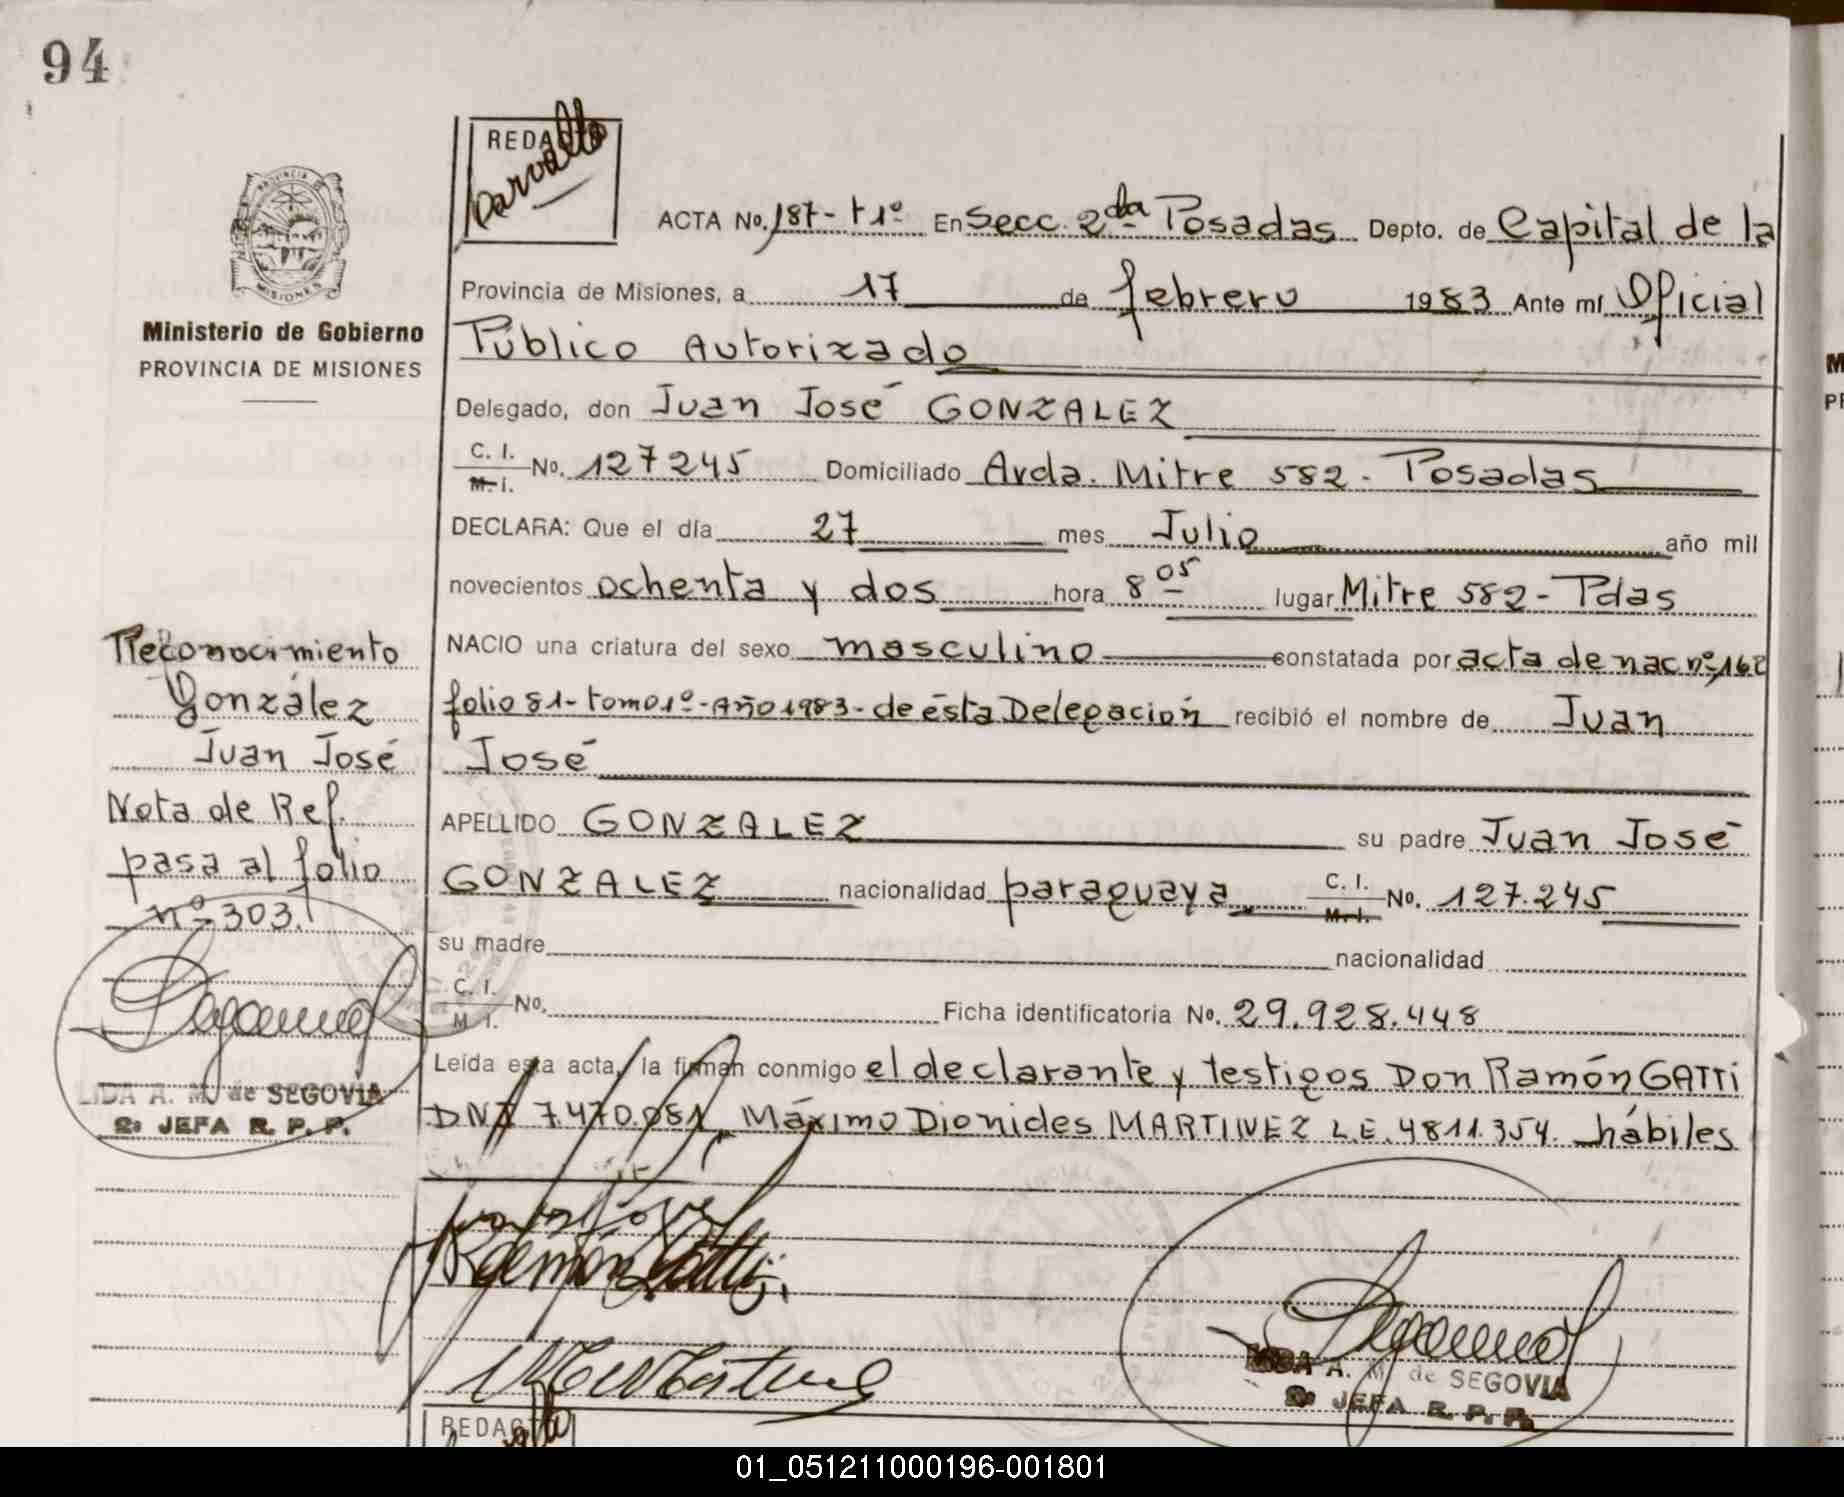 94
REDACTO
Carvallo
PROVINCIA DE MISIONES
Ministerio de Gobierno
PROVINCIA DE MISIONES
ACTA No. 187-t1º En Secc. 2da Posadas Depto. de Capital de la
Provincia de Misiones, a 17 de febrero 1983 Ante mí Oficial
Público Autorizado
Delegado, don Juan José GONZALEZ
C. I. M. I. No. 127245 Domiciliado Avda. Mitre 582 - Posadas
DECLARA: Que el día 27 mes Julio año mil
novecientos ochenta y dos hora 8 05 lugar Mitre 582 - Pdas
NACIO una criatura del sexo masculino constatada por acta de nac nº 162
folio 81 - tomo 1º - Año 1983 - de ésta Delegación recibió el nombre de Juan
José
APELLIDO GONZALEZ su padre Juan José
GONZALEZ nacionalidad paraguaya C. I. M. I. No. 127.245
su madre nacionalidad
C. I. M. I. No. Ficha identificatoria No. 29.928.448
Leída esta acta, la firman conmigo el declarante y testigos Don Ramón GATTI
DNI 7.470.081, Máximo Dionides MARTINEZ L.E. 4811.354. hábiles
Reconocimiento
González
Juan José
Nota de Ref.
pasa al folio
nº 303.
LIDA A. M. de SEGOVIA
2º JEFA R. P. P.
Ramón Gatti
A. M. de SEGOVIA
2º JEFA R. P. P.
REDACTO
01_051211000196-001801